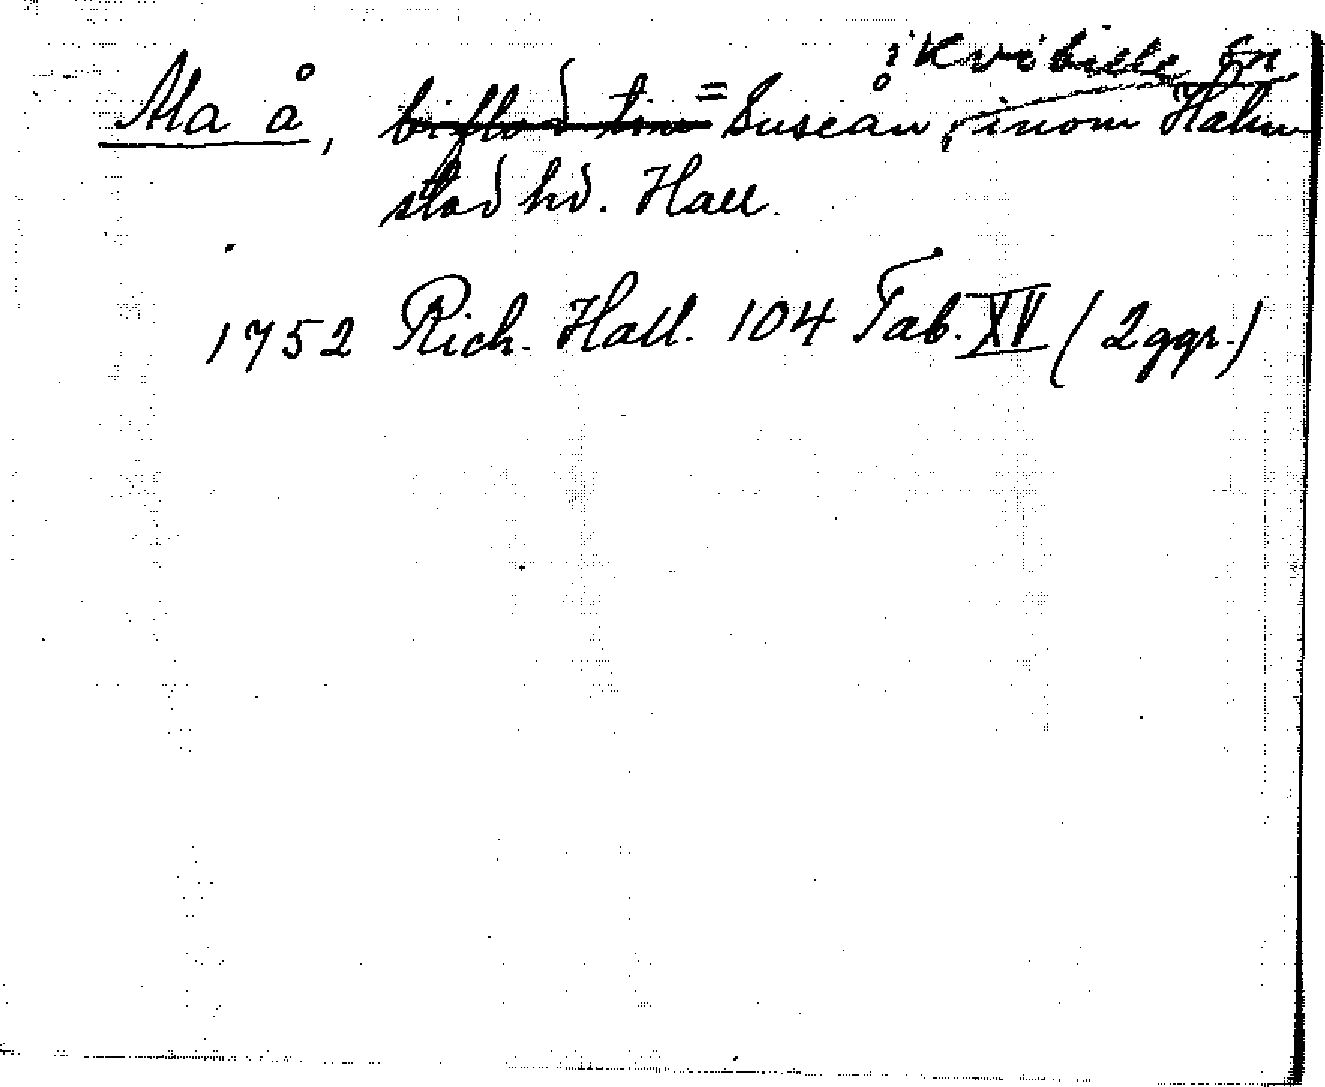 i Kvibille sn
Ala å, biflod till = Suseån, inom Halm
stad hd. Hall.
1752 Rich. Hall. 104 Tab. XV (2 ggr.)